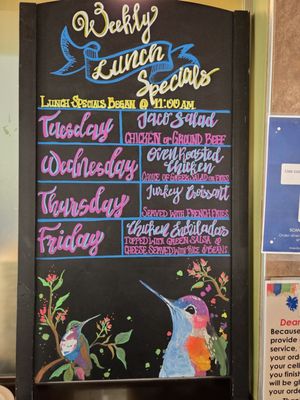 Weekly
Lunch
Specials
LUNCH SPECIALS BEGAN @ 11:00 AM
Tuesday
Taco Salad
CHICKEN OR GROUND BEEF
Wednesday
Oven Roasted
Chicken
CHOICE OF GREEK SALAD OR FRIES
Thursday
Turkey Croissant
SERVED WITH FRENCH FRIES
Friday
Chicken Enchiladas
TOPPED WITH GREEN SALSA &
CHEESE SERVED WITH RICE & BEANS
Dear
Because
provide
service,
your
your cell
you finish
will be
your order